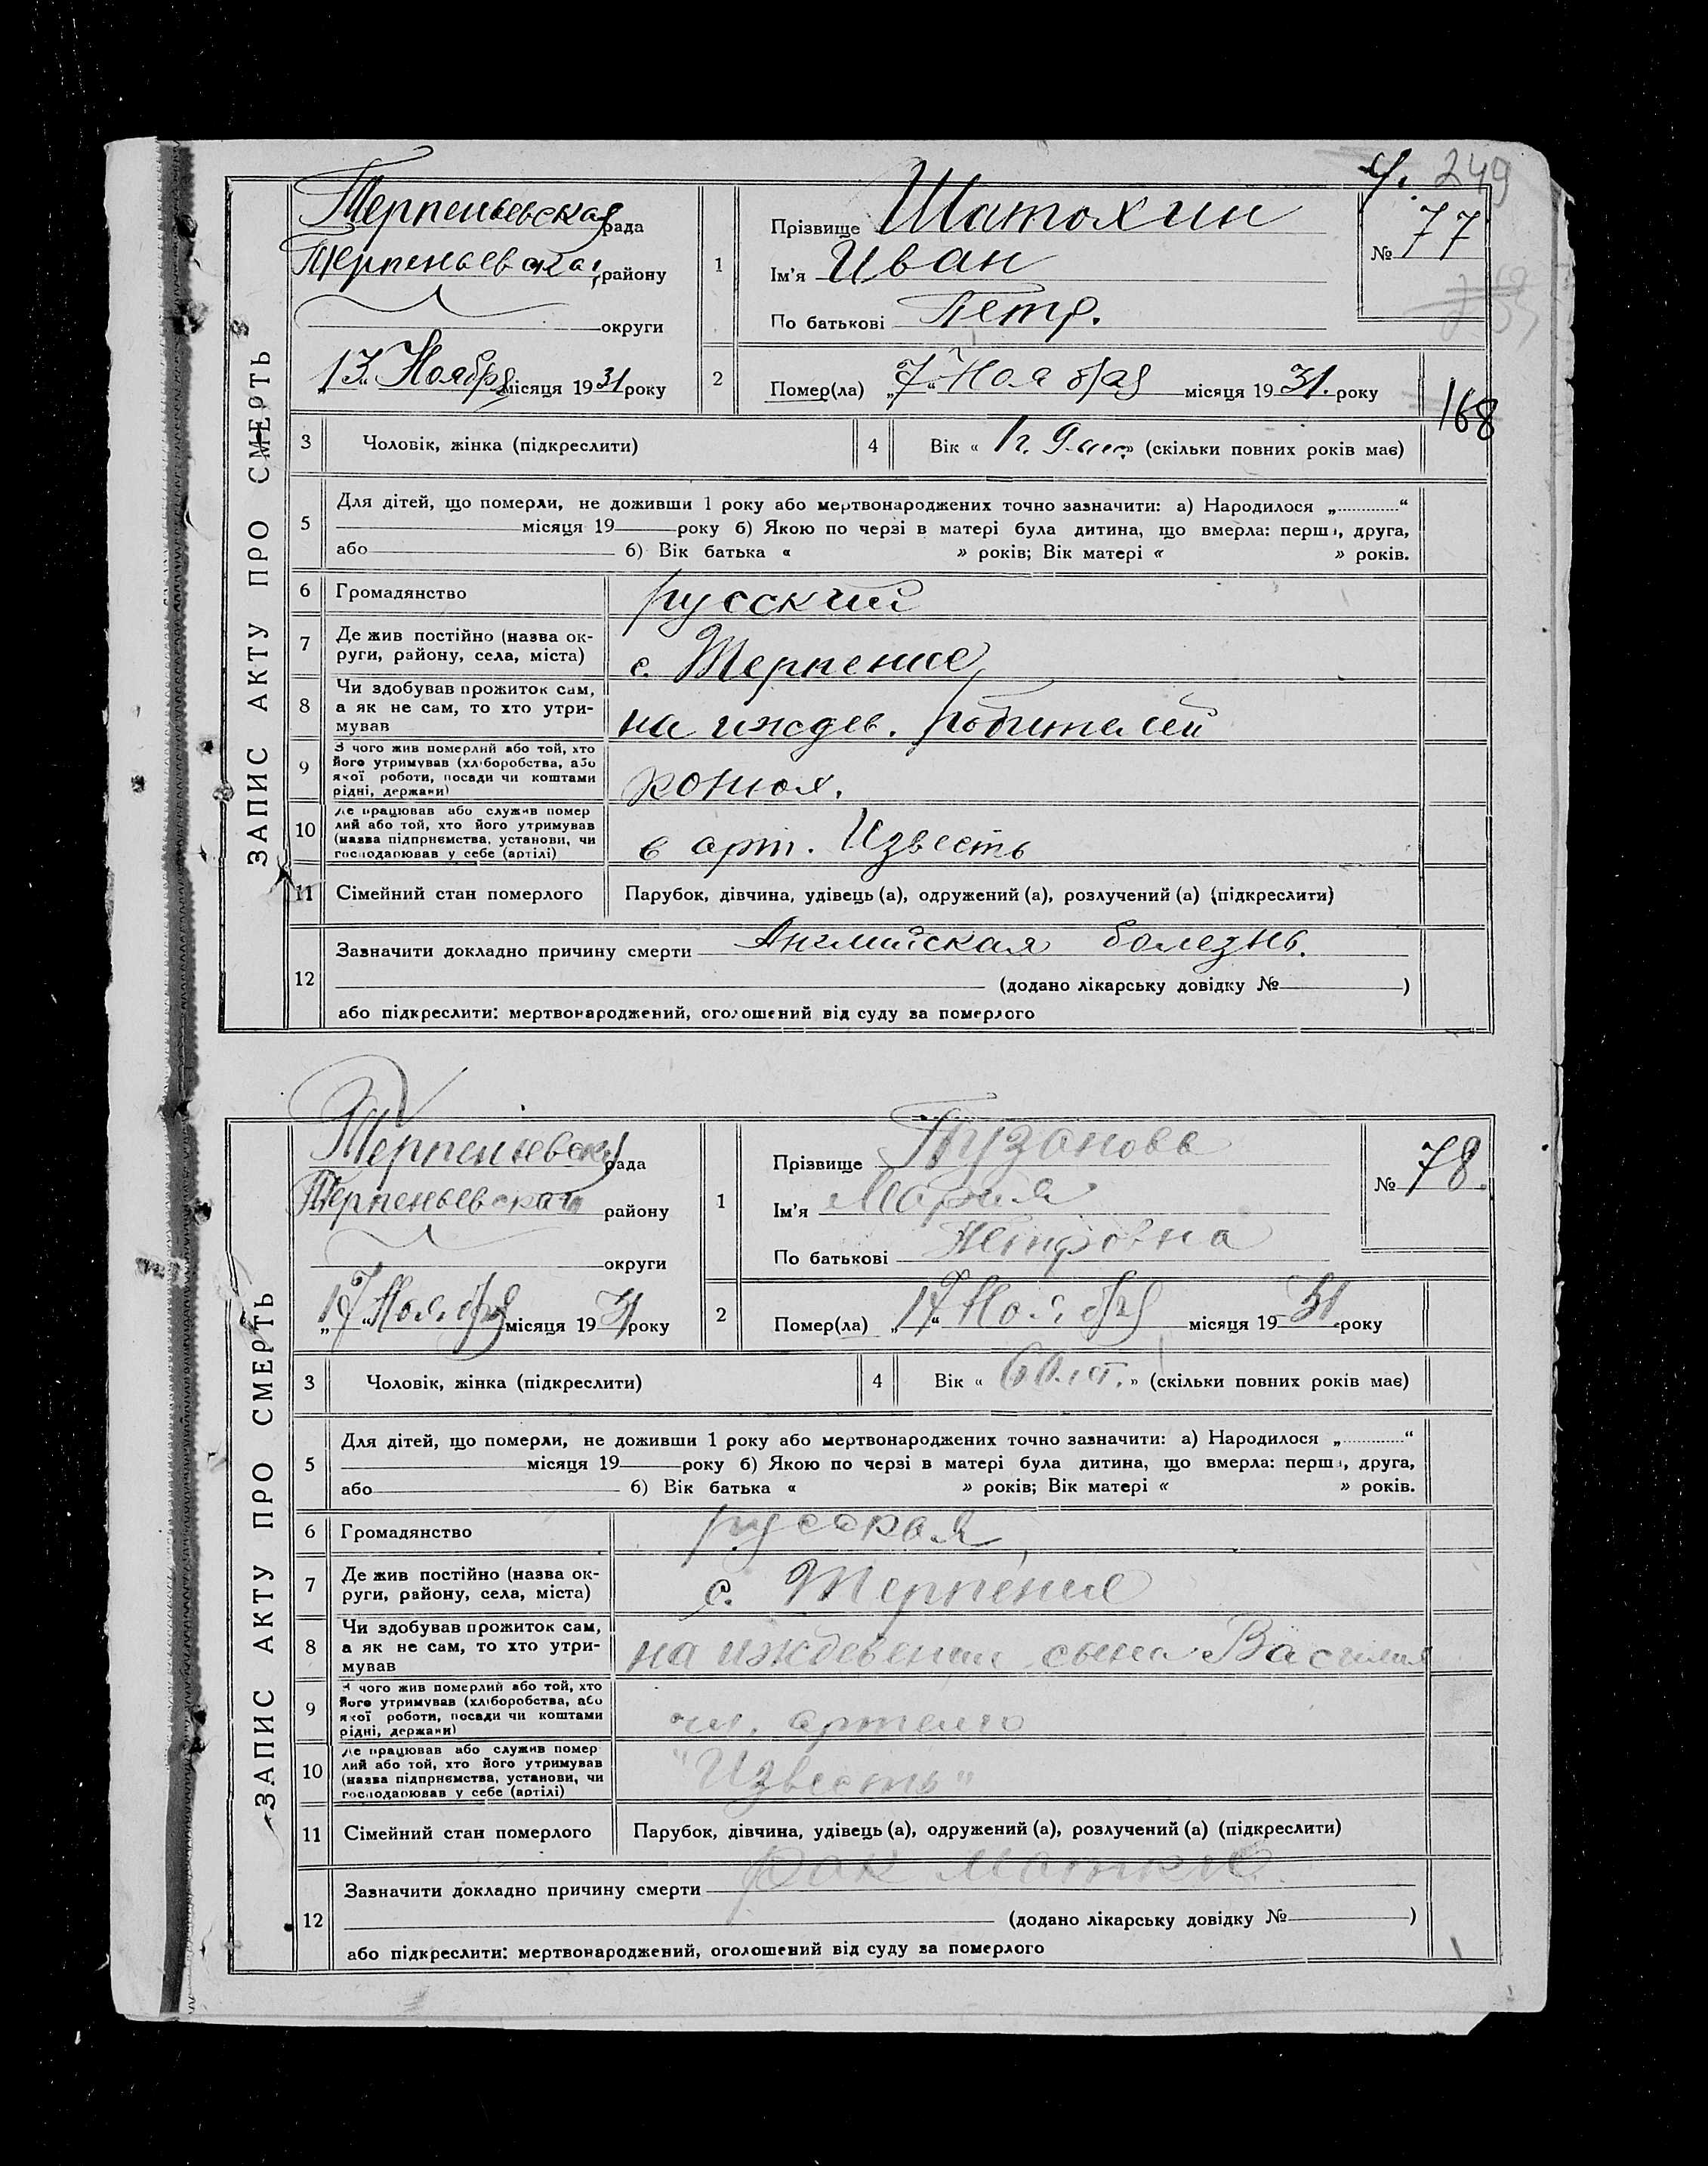 249
ЗАПИС АКТУ ПРО СМЕРТЬ
Терпеньевская рада
Терпеньевская району
округи
„13“ Ноября місяця 1931 року
1
Прізвище Шатохин
Ім'я Иван
По батькові Петр.
№ 77
2
Помер(ла) „7“ Ноября місяця 1931. року
168
3 Чоловік, жінка (підкреслити)
4 Вік « 1 г. 9 мес. » (скільки повних років має)
5
Для дітей, що померли, не доживши 1 року або мертвонароджених точно зазначити: а) Народилося „............“
місяця 19 року б) Якою по черзі в матері була дитина, що вмерла: перша, друга,
або б) Вік батька « » років; Вік матері « » років.
6 Громадянство русский
7 Де жив постійно (назва ок-
руги, району, села, міста)
с. Терпение
8 Чи здобував прожиток сам,
а як не сам, то хто утри-
мував
на иждев. родителей
9 З чого жив померлий або той, хто
його утримував (хліборобства, або
якої роботи, посади чи коштами
рідні, держави)
конюх.
10 Де працював або служив помер
лий або той, хто його утримував
(назва підприємства, установи, чи
господарював у себе (артілі)
в арт. Известь
11 Сімейний стан померлого Парубок, дівчина, удівець (а), одружений (а), розлучений (а) (підкреслити)
12
Зазначити докладно причину смерти Английская болезнь.
(додано лікарську довідку № )
або підкреслити: мертвонароджений, оголошений від суду за померлого
ЗАПИС АКТУ ПРО СМЕРТЬ
Терпеньевская рада
Терпеньевская району
округи
„17“ Ноября місяця 1931 року
1
Прізвище Пузанова
Ім'я Мария
По батькові Петровна
№ 78.
2
Помер(ла) „17“ Ноября місяця 1931 року
3 Чоловік, жінка (підкреслити)
4 Вік « 60 лет. » (скільки повних років має)
5
Для дітей, що померли, не доживши 1 року або мертвонароджених точно зазначити: а) Народилося „............“
місяця 19 року б) Якою по черзі в матері була дитина, що вмерла: перша, друга,
або б) Вік батька « » років; Вік матері « » років.
6 Громадянство русская
7 Де жив постійно (назва ок-
руги, району, села, міста)
с. Терпение
8 Чи здобував прожиток сам,
а як не сам, то хто утри-
мував
на иждевении сына Василия
9 З чого жив померлий або той, хто
його утримував (хліборобства, або
якої роботи, посади чи коштами
рідні, держави)
чл. артели
10 Де працював або служив помер
лий або той, хто його утримував
(назва підприємства, установи, чи
господарював у себе (артілі)
"Известь"
11 Сімейний стан померлого Парубок, дівчина, удівець (а), одружений (а), розлучений (а) (підкреслити)
12
Зазначити докладно причину смерти рак матки.
(додано лікарську довідку № )
або підкреслити: мертвонароджений, оголошений від суду за померлого